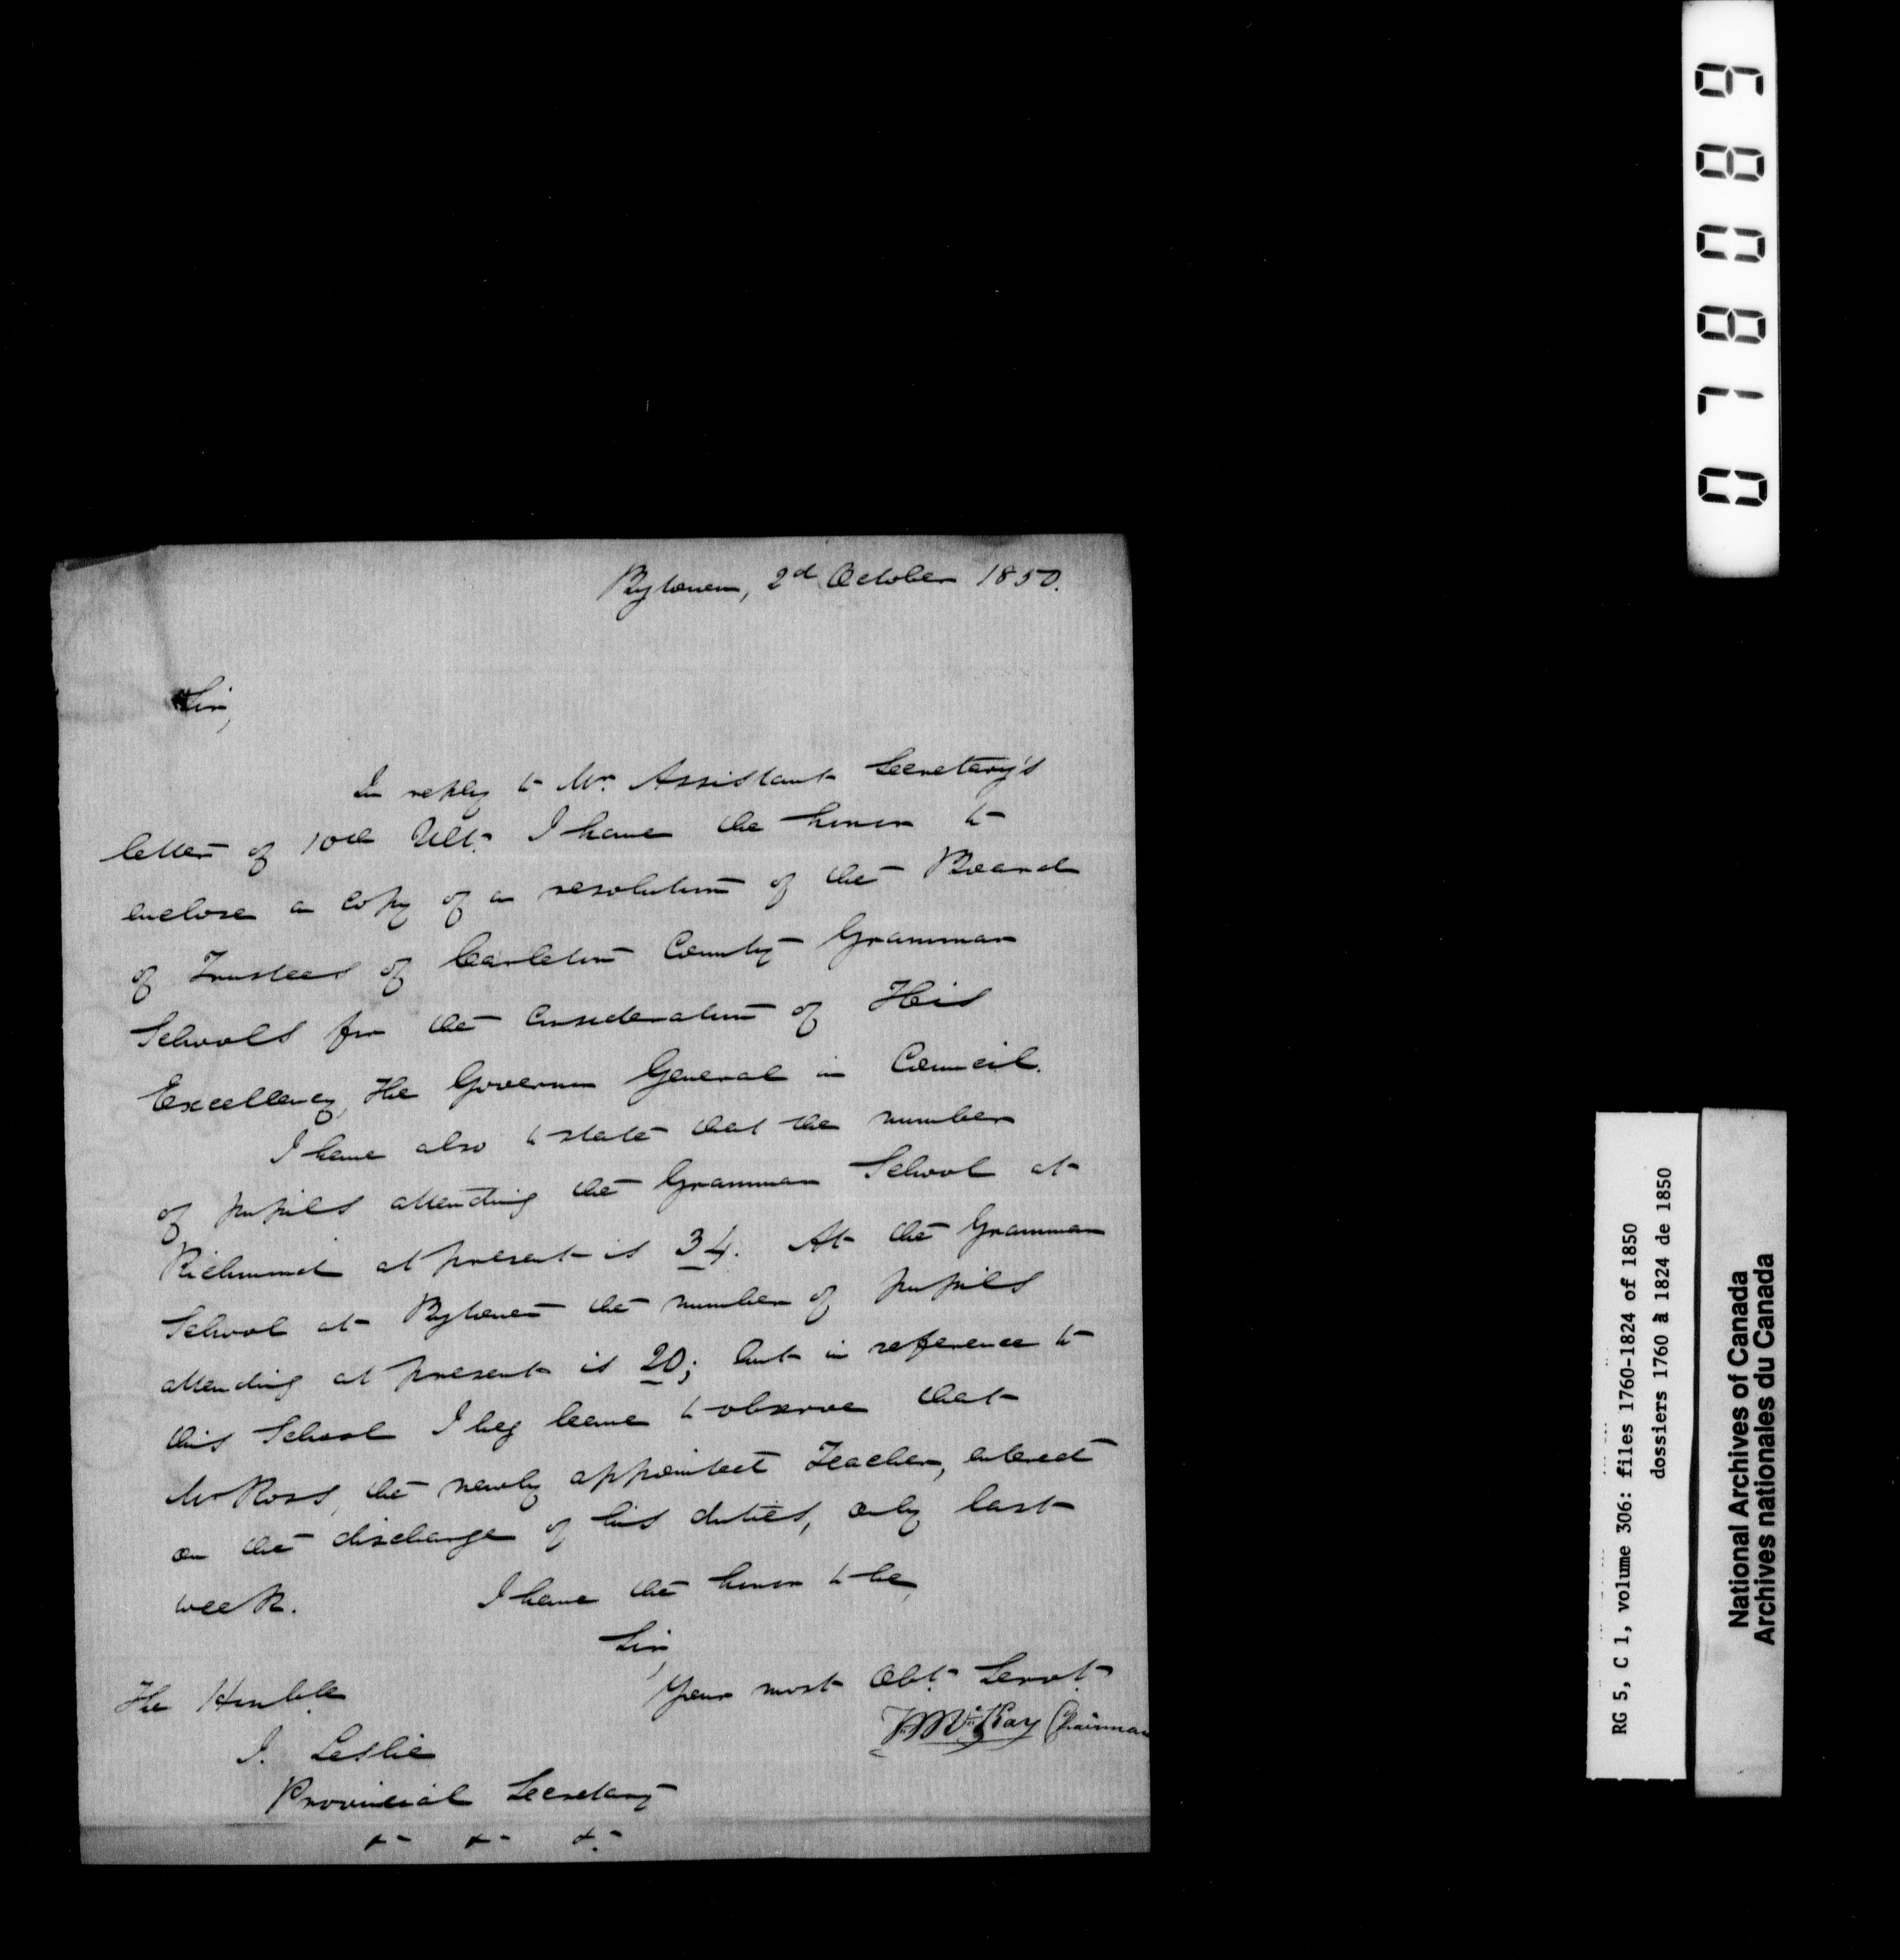 Bytown, 2d October 1850.
Sir,
In reply to Mr. Assistant Secretary's
letter of 10th Ult. I have the honor to
enclose a copy of a resolution of the Board
of Trustees of Carleton County Grammar
Schools for the consideration of His
Excellency, the Governor General in Council.
I have also to state that the number
of pupils attending the Grammar School at
Richmond at present is 34. At the Grammar
School at Bytown the number of pupils
attending at present is 20; but in reference to
this School I beg leave to observe that
Mr Ross, the newly appointed Teacher, entered
on the discharge of his duties, only last
week.
I have the honor to be,
Sir,
Your most Obt. Servt.
McKay Chairman
The Honble.
J. Leslie
Provincial Secretary
&c &c &c.
017808 9
RG 5, C 1, volume 306: files 1760-1824 of 1850
dossiers 1760 à 1824 de 1850
National Archives of Canada
Archives nationales du Canada